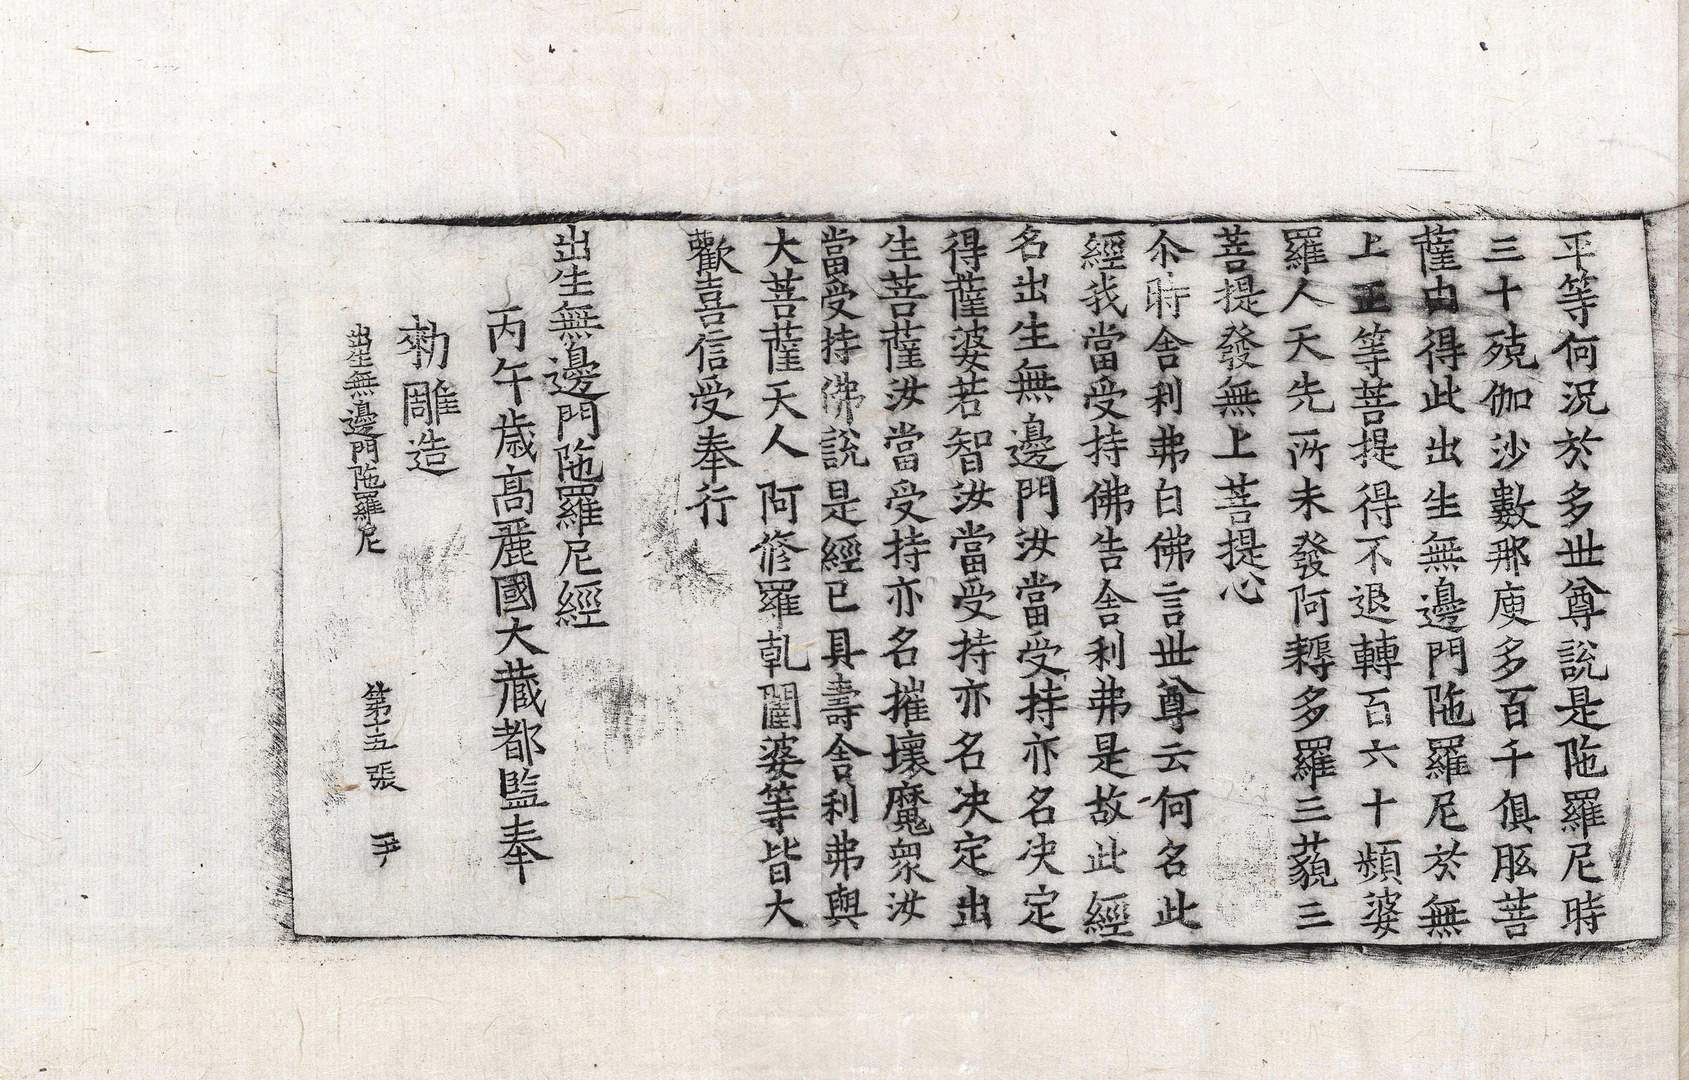 平等何況於多世尊說是陁羅尼時
三十殑伽沙數那庾多百千俱胝菩
薩由得此出生無邊門陁羅尼於無
上正等菩提得不退轉百六十頻婆
羅人天先所未發阿耨多羅三藐三
菩提發無上菩提心
尒時舍利弗白佛言世尊云何名此
經我當受持佛告舍利弗是故此經
名出生無邊門汝當受持亦名決定
得薩婆若智汝當受持亦名決定出
生菩薩汝當受持亦名摧壞魔衆汝
當受持佛說是經已具壽舍利弗與
大菩薩天人阿修羅乹闥婆等皆大
歡喜信受奉行
出生無邊門陁羅尼經
丙午歲高麗國大藏都監奉
勑雕造
出生無邊門陁羅尼 第十五張